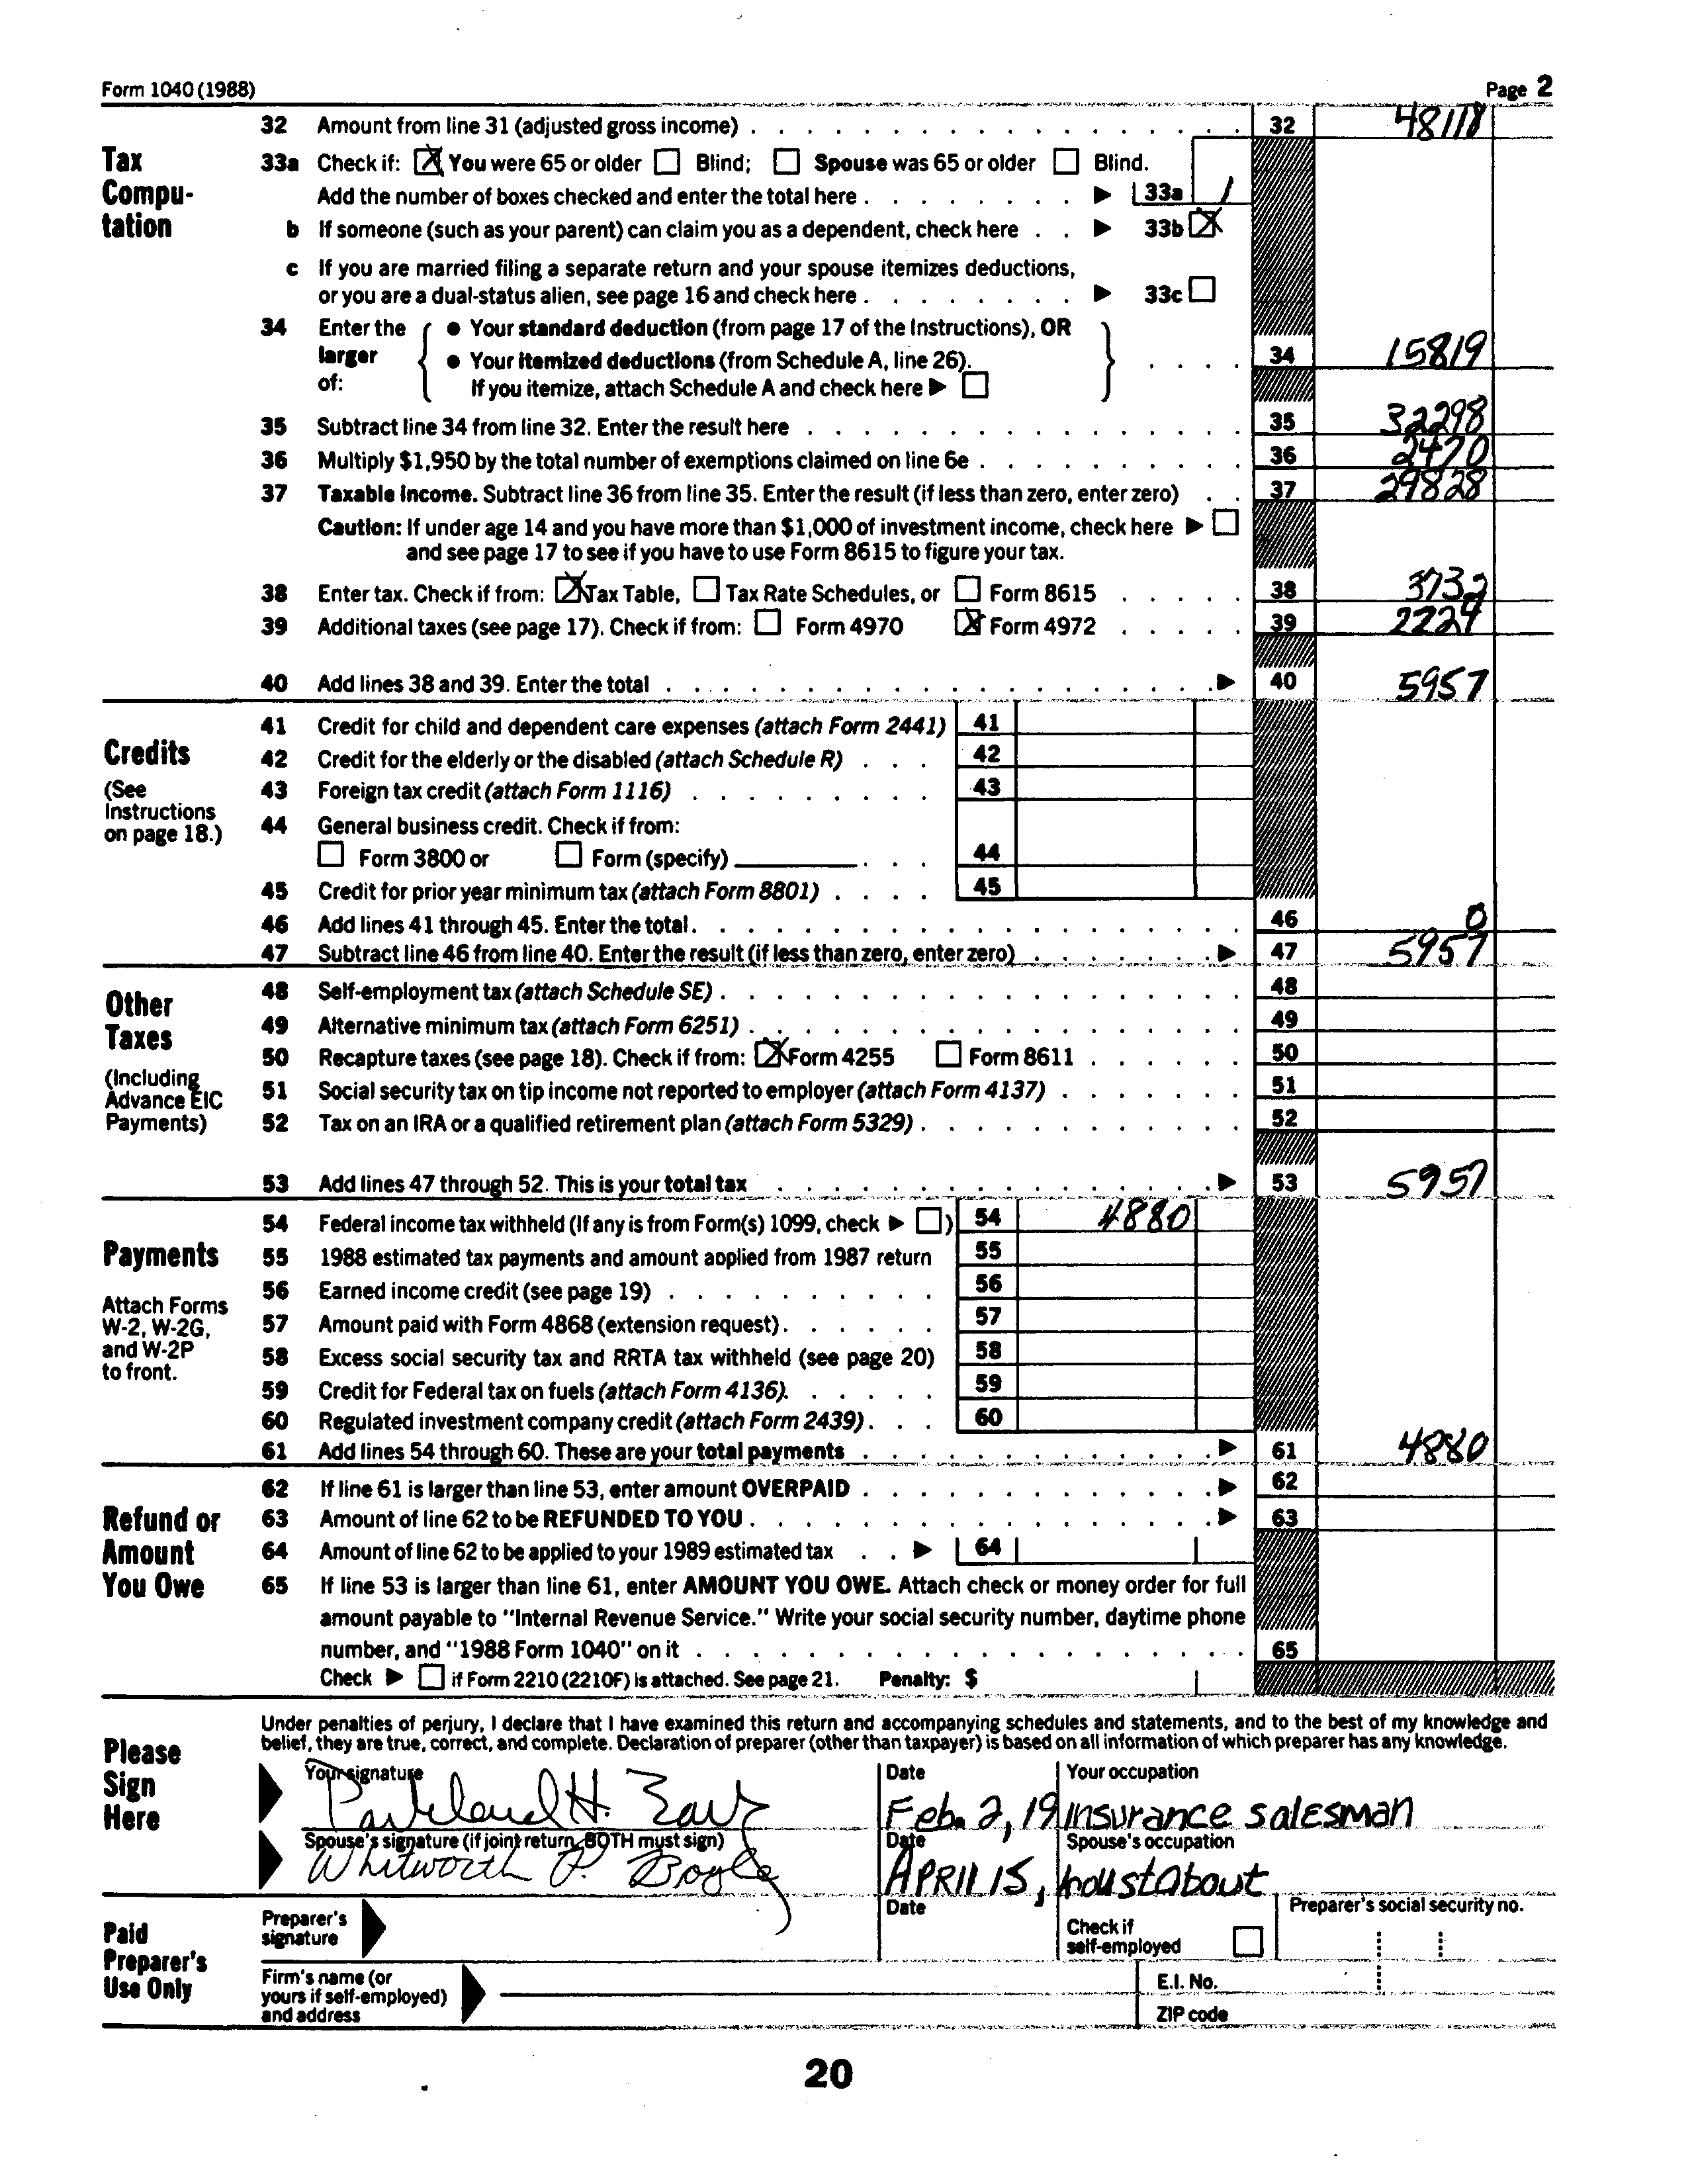 Form 1040 (1988) Page 2
32 Amount from line 31 (adjusted gross income) . . . 32 48118
Tax Compu- tation
33a Check if: ☒ You were 65 or older ☐ Blind; ☐ Spouse was 65 or older ☐ Blind.
Add the number of boxes checked and enter the total here . . . ▶ 33a 1
b If someone (such as your parent) can claim you as a dependent, check here . . ▶ 33b ☒
c If you are married filing a separate return and your spouse itemizes deductions,
or you are a dual-status alien, see page 16 and check here . . . ▶ 33c ☐
34 Enter the larger of:
● Your standard deduction (from page 17 of the Instructions), OR
● Your itemized deductions (from Schedule A, line 26). . . . 34 15819
If you itemize, attach Schedule A and check here ▶ ☐
35 Subtract line 34 from line 32. Enter the result here . . . 35 32298
36 Multiply $1,950 by the total number of exemptions claimed on line 6e . . . 36 2470
37 Taxable income. Subtract line 36 from line 35. Enter the result (if less than zero, enter zero) . . 37 29828
Caution: If under age 14 and you have more than $1,000 of investment income, check here ▶ ☐
and see page 17 to see if you have to use Form 8615 to figure your tax.
38 Enter tax. Check if from: ☒ Tax Table, ☐ Tax Rate Schedules, or ☐ Form 8615 . . . 38 3732
39 Additional taxes (see page 17). Check if from: ☐ Form 4970 ☒ Form 4972 . . . 39 2224
40 Add lines 38 and 39. Enter the total . . . ▶ 40 5957
Credits
(See Instructions on page 18.)
41 Credit for child and dependent care expenses (attach Form 2441) 41
42 Credit for the elderly or the disabled (attach Schedule R) . . . 42
43 Foreign tax credit (attach Form 1116) . . . 43
44 General business credit. Check if from:
☐ Form 3800 or ☐ Form (specify) . . . 44
45 Credit for prior year minimum tax (attach Form 8801) . . . 45
46 Add lines 41 through 45. Enter the total. . . . 46 0
47 Subtract line 46 from line 40. Enter the result (if less than zero, enter zero) . . . ▶ 47 5957
Other Taxes
(Including Advance EIC Payments)
48 Self-employment tax (attach Schedule SE) . . . 48
49 Alternative minimum tax (attach Form 6251) . . . 49
50 Recapture taxes (see page 18). Check if from: ☒ Form 4255 ☐ Form 8611 . . . 50
51 Social security tax on tip income not reported to employer (attach Form 4137) . . . 51
52 Tax on an IRA or a qualified retirement plan (attach Form 5329) . . . 52
53 Add lines 47 through 52. This is your total tax . . . ▶ 53 5957
Payments
Attach Forms W-2, W-2G, and W-2P to front.
54 Federal income tax withheld (If any is from Form(s) 1099, check ▶ ☐) 54 4880
55 1988 estimated tax payments and amount applied from 1987 return 55
56 Earned income credit (see page 19) . . . 56
57 Amount paid with Form 4868 (extension request) . . . 57
58 Excess social security tax and RRTA tax withheld (see page 20) 58
59 Credit for Federal tax on fuels (attach Form 4136). . . . 59
60 Regulated investment company credit (attach Form 2439) . . . 60
61 Add lines 54 through 60. These are your total payments . . . ▶ 61 4880
Refund or Amount You Owe
62 If line 61 is larger than line 53, enter amount OVERPAID . . . ▶ 62
63 Amount of line 62 to be REFUNDED TO YOU . . . ▶ 63
64 Amount of line 62 to be applied to your 1989 estimated tax . . ▶ 64
65 If line 53 is larger than line 61, enter AMOUNT YOU OWE. Attach check or money order for full
amount payable to "Internal Revenue Service." Write your social security number, daytime phone
number, and "1988 Form 1040" on it . . . 65
Check ▶ ☐ if Form 2210 (2210F) is attached. See page 21. Penalty: $
Please Sign Here
Under penalties of perjury, I declare that I have examined this return and accompanying schedules and statements, and to the best of my knowledge and
belief, they are true, correct, and complete. Declaration of preparer (other than taxpayer) is based on all information of which preparer has any knowledge.
Your signature Date Your occupation
H. Feb. 2, 19 insurance salesman
Spouse's signature (if joint return, BOTH must sign) Date Spouse's occupation
Whitworth P. Boyle APRIL 15, houstabout
Paid Preparer's Use Only
Preparer's signature Date Check if self-employed ☐ Preparer's social security no.
Firm's name (or yours if self-employed) and address E.I. No.
ZIP code
20